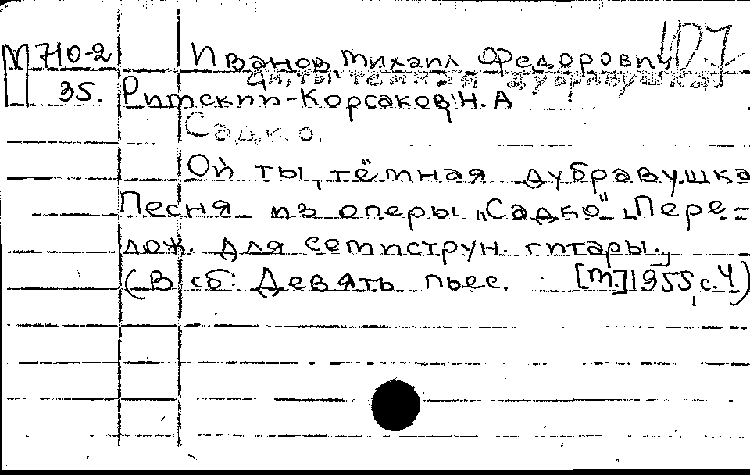 М 710-2 Иванов Михаил Федорович 107
Ой, ты тёмная дубравушка
35. Римский-Корсаков Н. А
Садко.
Ой ты, тёмная дубравушка
Песня из оперы „Садко". Пере-
лож. для семиструн. гитары.,
(В сб: Девять пьес. [М.] 1955, с. 4)